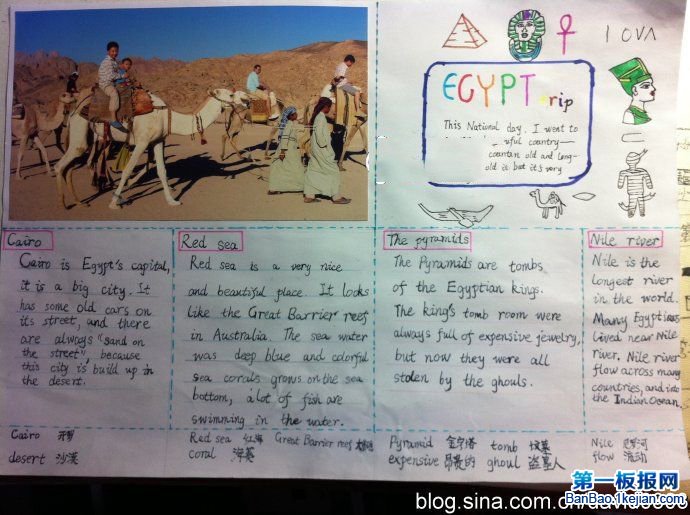 I OVA
EGYPT rip
This National day. I went to
ful country—
countan old and long-
old it but it's very
Cairo
Cairo is Egypt's capital,
it is a big city. It
has some old cars on
its street, and there
are always "sand on
the street", because
this city is build up in
the desert.
Red sea
Red sea is a very nice
and beautiful place. It looks
like the Great Barrier reef
in Australia. The sea water
was deep blue and colorful
sea corals grows on the sea
bottom, a lot of fish are
swimming in the water.
The pyramids
The Pyramids are tombs
of the Egyptian kings.
The king's tomb room were
always full of expensive jewelry,
but now they were all
stolen by the ghouls.
Nile river
Nile is the
longest river
in the world.
Many Egyptians
lived near Nile
river. Nile river
flow across many
countries, and into
the Indian Ocean.
Cairo 开罗
desert 沙漠
Red sea 红海 Great Barrier reef
coral
Pyramid 金字塔 tomb 坟墓
expensive 昂贵的 ghoul 盗墓人
Nile 尼罗河
flow 流动
第一板报网
BanBao.1kejian.com
blog.sina.com.cn/david